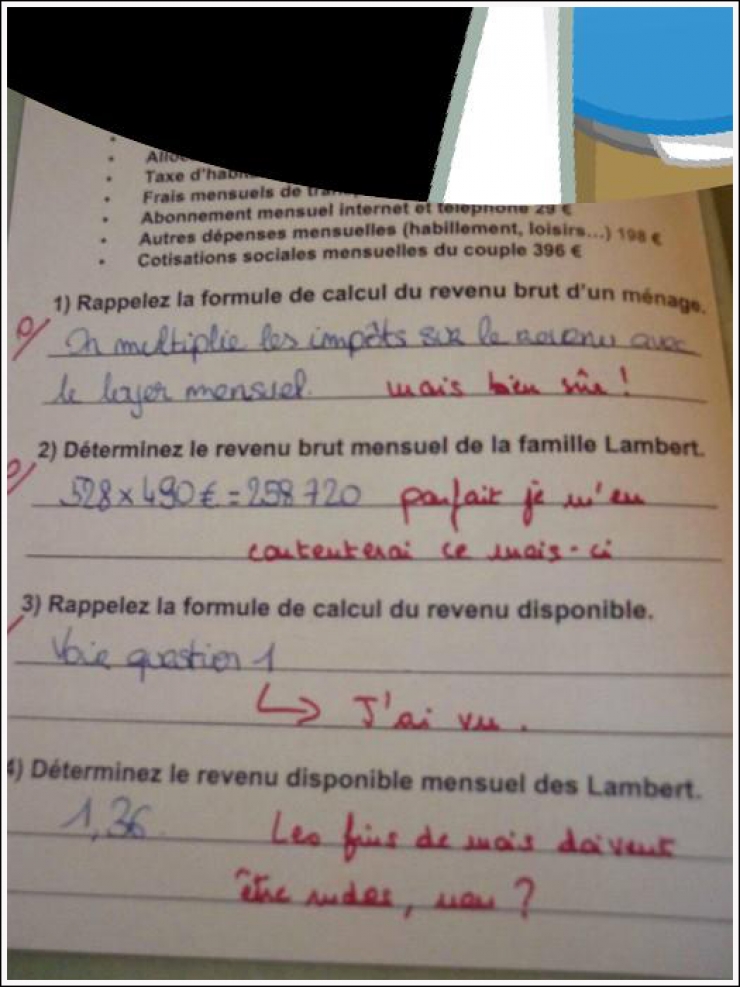 Taxe d'
Frais mensuels de
Abonnement mensuel internet et téléphone 29 €
Autres dépenses mensuelles (habillement, loisirs...) 198 €
Cotisations sociales mensuelles du couple 396 €
1) Rappelez la formule de calcul du revenu brut d'un ménage.
On multiplie les impôts sur le revenu avec
le loyer mensuel. mais bien sûr !
2) Déterminez le revenu brut mensuel de la famille Lambert.
528 x 490 € = 258 720 parfait je m'en
contenterai ce mois-ci
3) Rappelez la formule de calcul du revenu disponible.
Voie question 1
J'ai vu.
4) Déterminez le revenu disponible mensuel des Lambert.
1,36 Les fins de mois doivent
être rudes, non ?